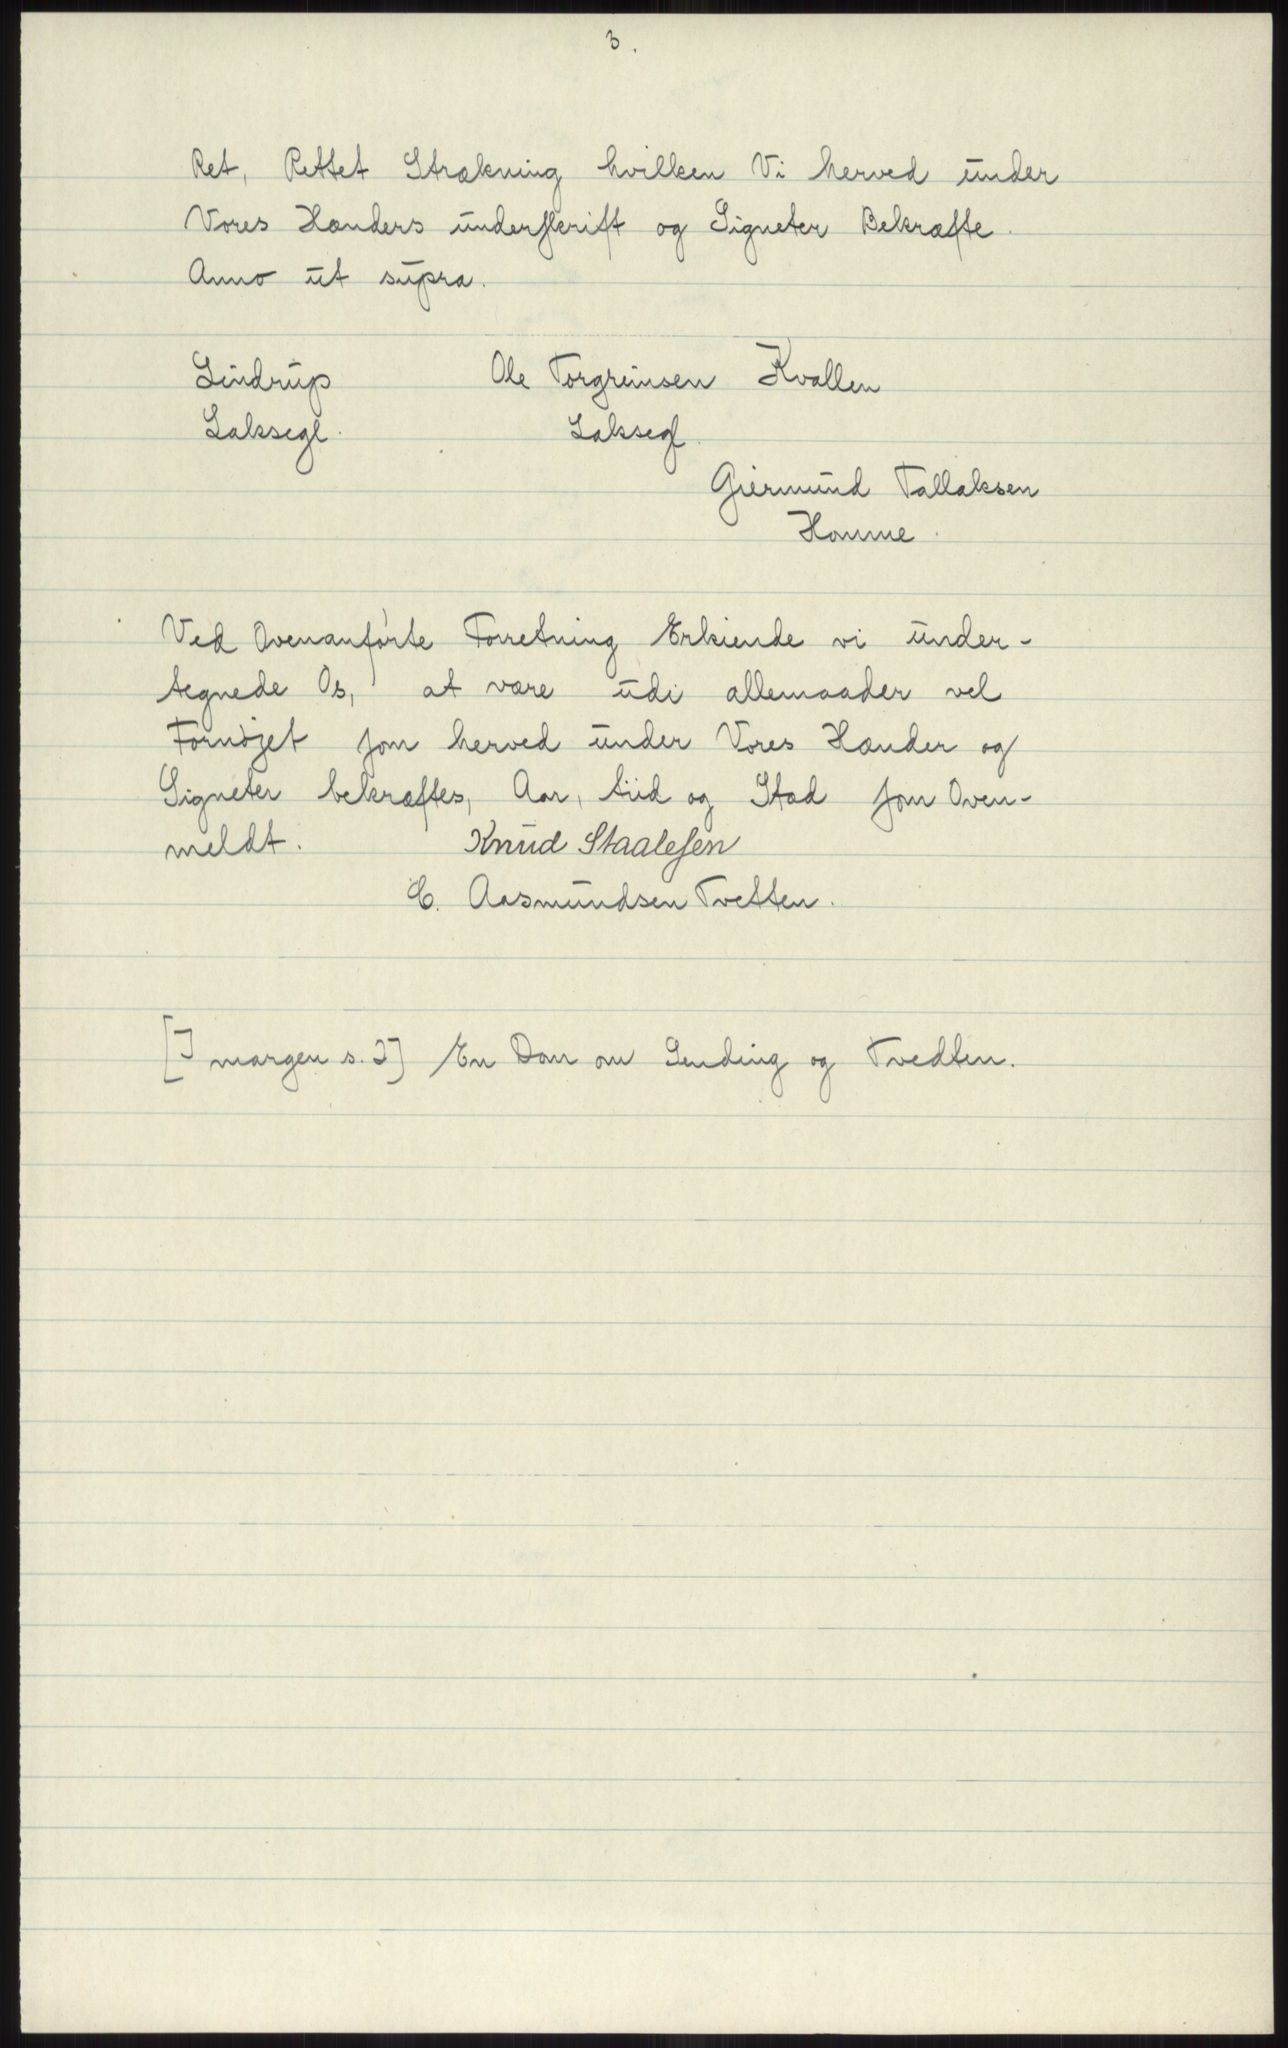 3.
Ret, Rettet Strækning hvilken Vi herved under
Vores Hænders underskrift og Signeter Bekræfte.
Anno ut supra.
Lindrup Ole Torgrimsen Kvallen
Laksegl. Laksegl.
Giermund Tallaksen
Homme.
Ved Ovenanførte Forretning Erkiende vi under-
tegnede Os, at være udi allemaader vel
Fornøjet som herved under Vores Hænder og
Signeter bekræftes, Aar, tiid og Stad som Oven-
meldt. Knud Staalesen
E. Aasmundsen Tvetten.
[I margen s. 2] En Dom om Lending og Tvedten.